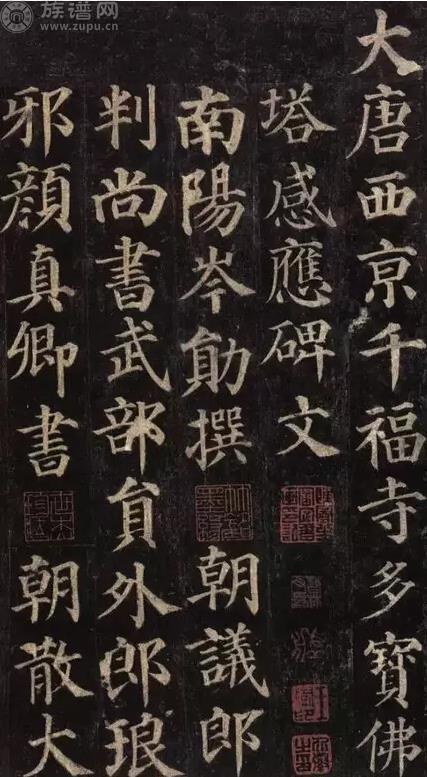 族谱网
www.zupu.cn
大唐西京千福寺多寶佛
塔感應碑文
南陽岑勛撰 朝議郎
判尚書武部員外郎琅
邪顏真卿書 朝散大